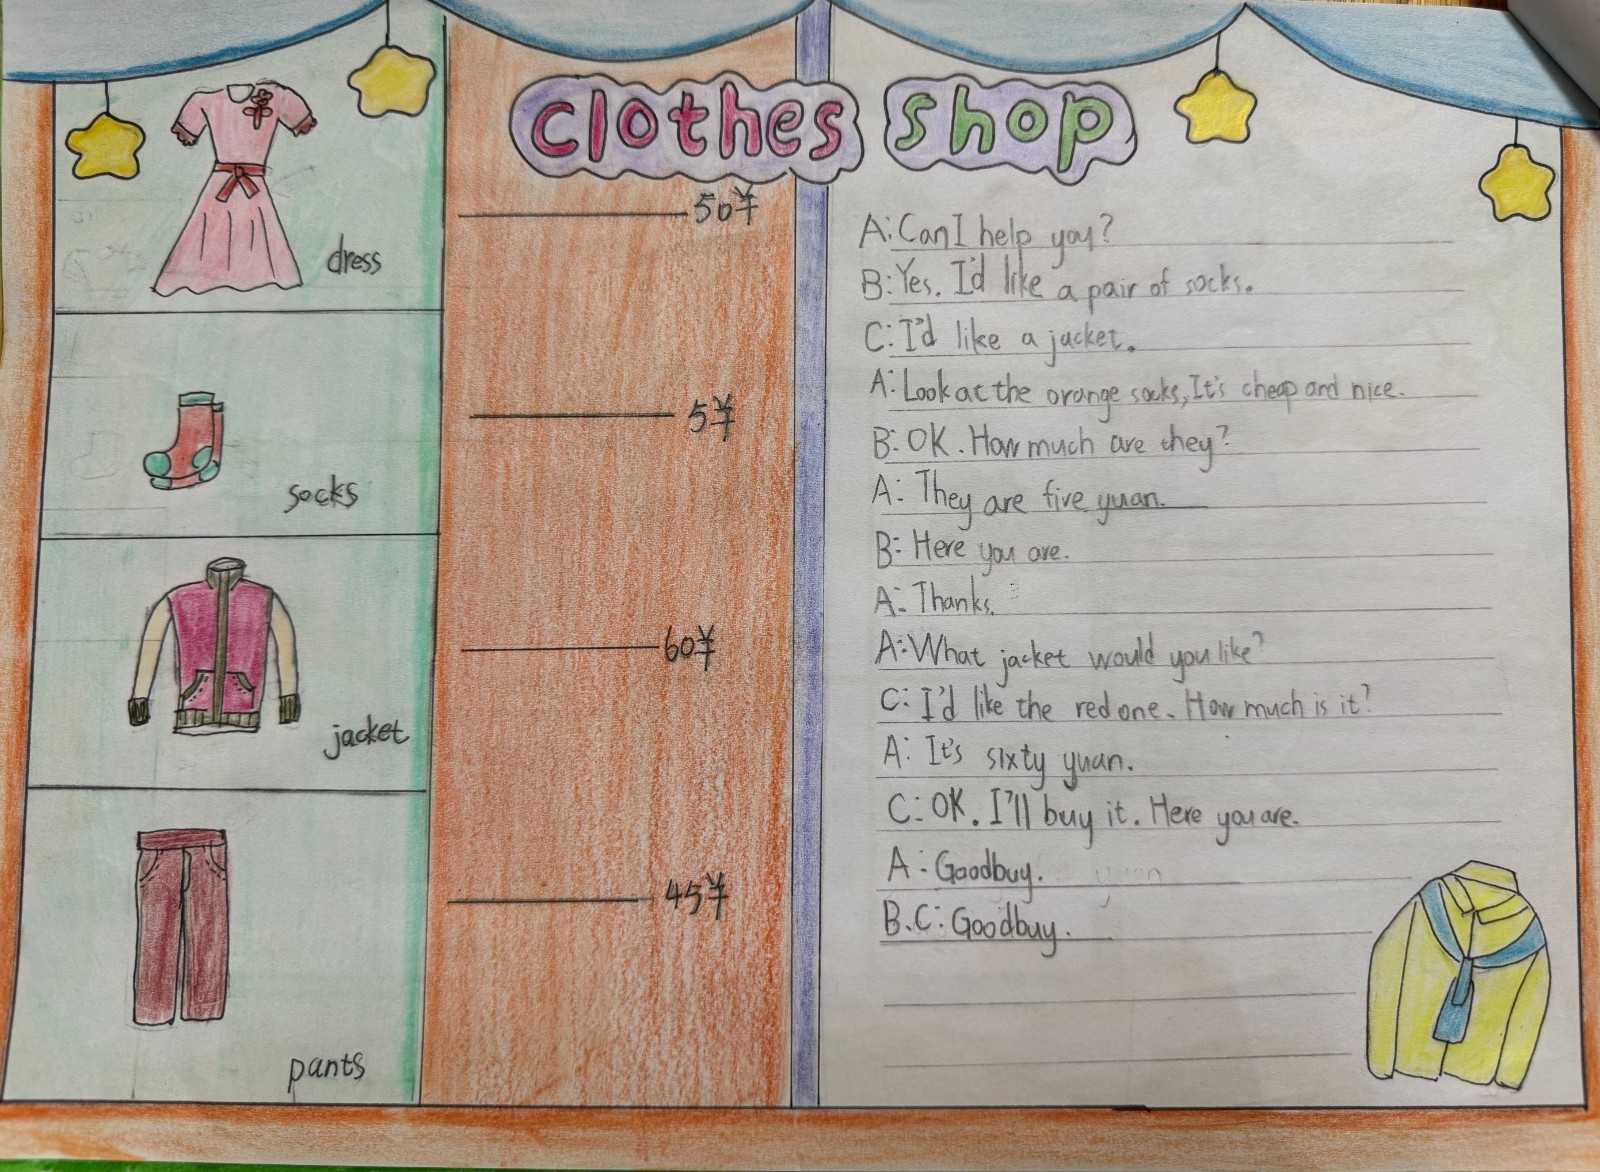 clothes shop
dress
50¥
socks
5¥
jacket
60¥
pants
45¥
A: Can I help you?
B: Yes. I'd like a pair of socks.
C: I'd like a jacket.
A: Look at the orange socks, It's cheap and nice.
B: OK. How much are they?
A: They are five yuan.
B: Here you are.
A: Thanks.
A: What jacket would you like?
C: I'd like the red one. How much is it?
A: It's sixty yuan.
C: OK. I'll buy it. Here you are.
A: Goodbuy.
B.C: Goodbuy.